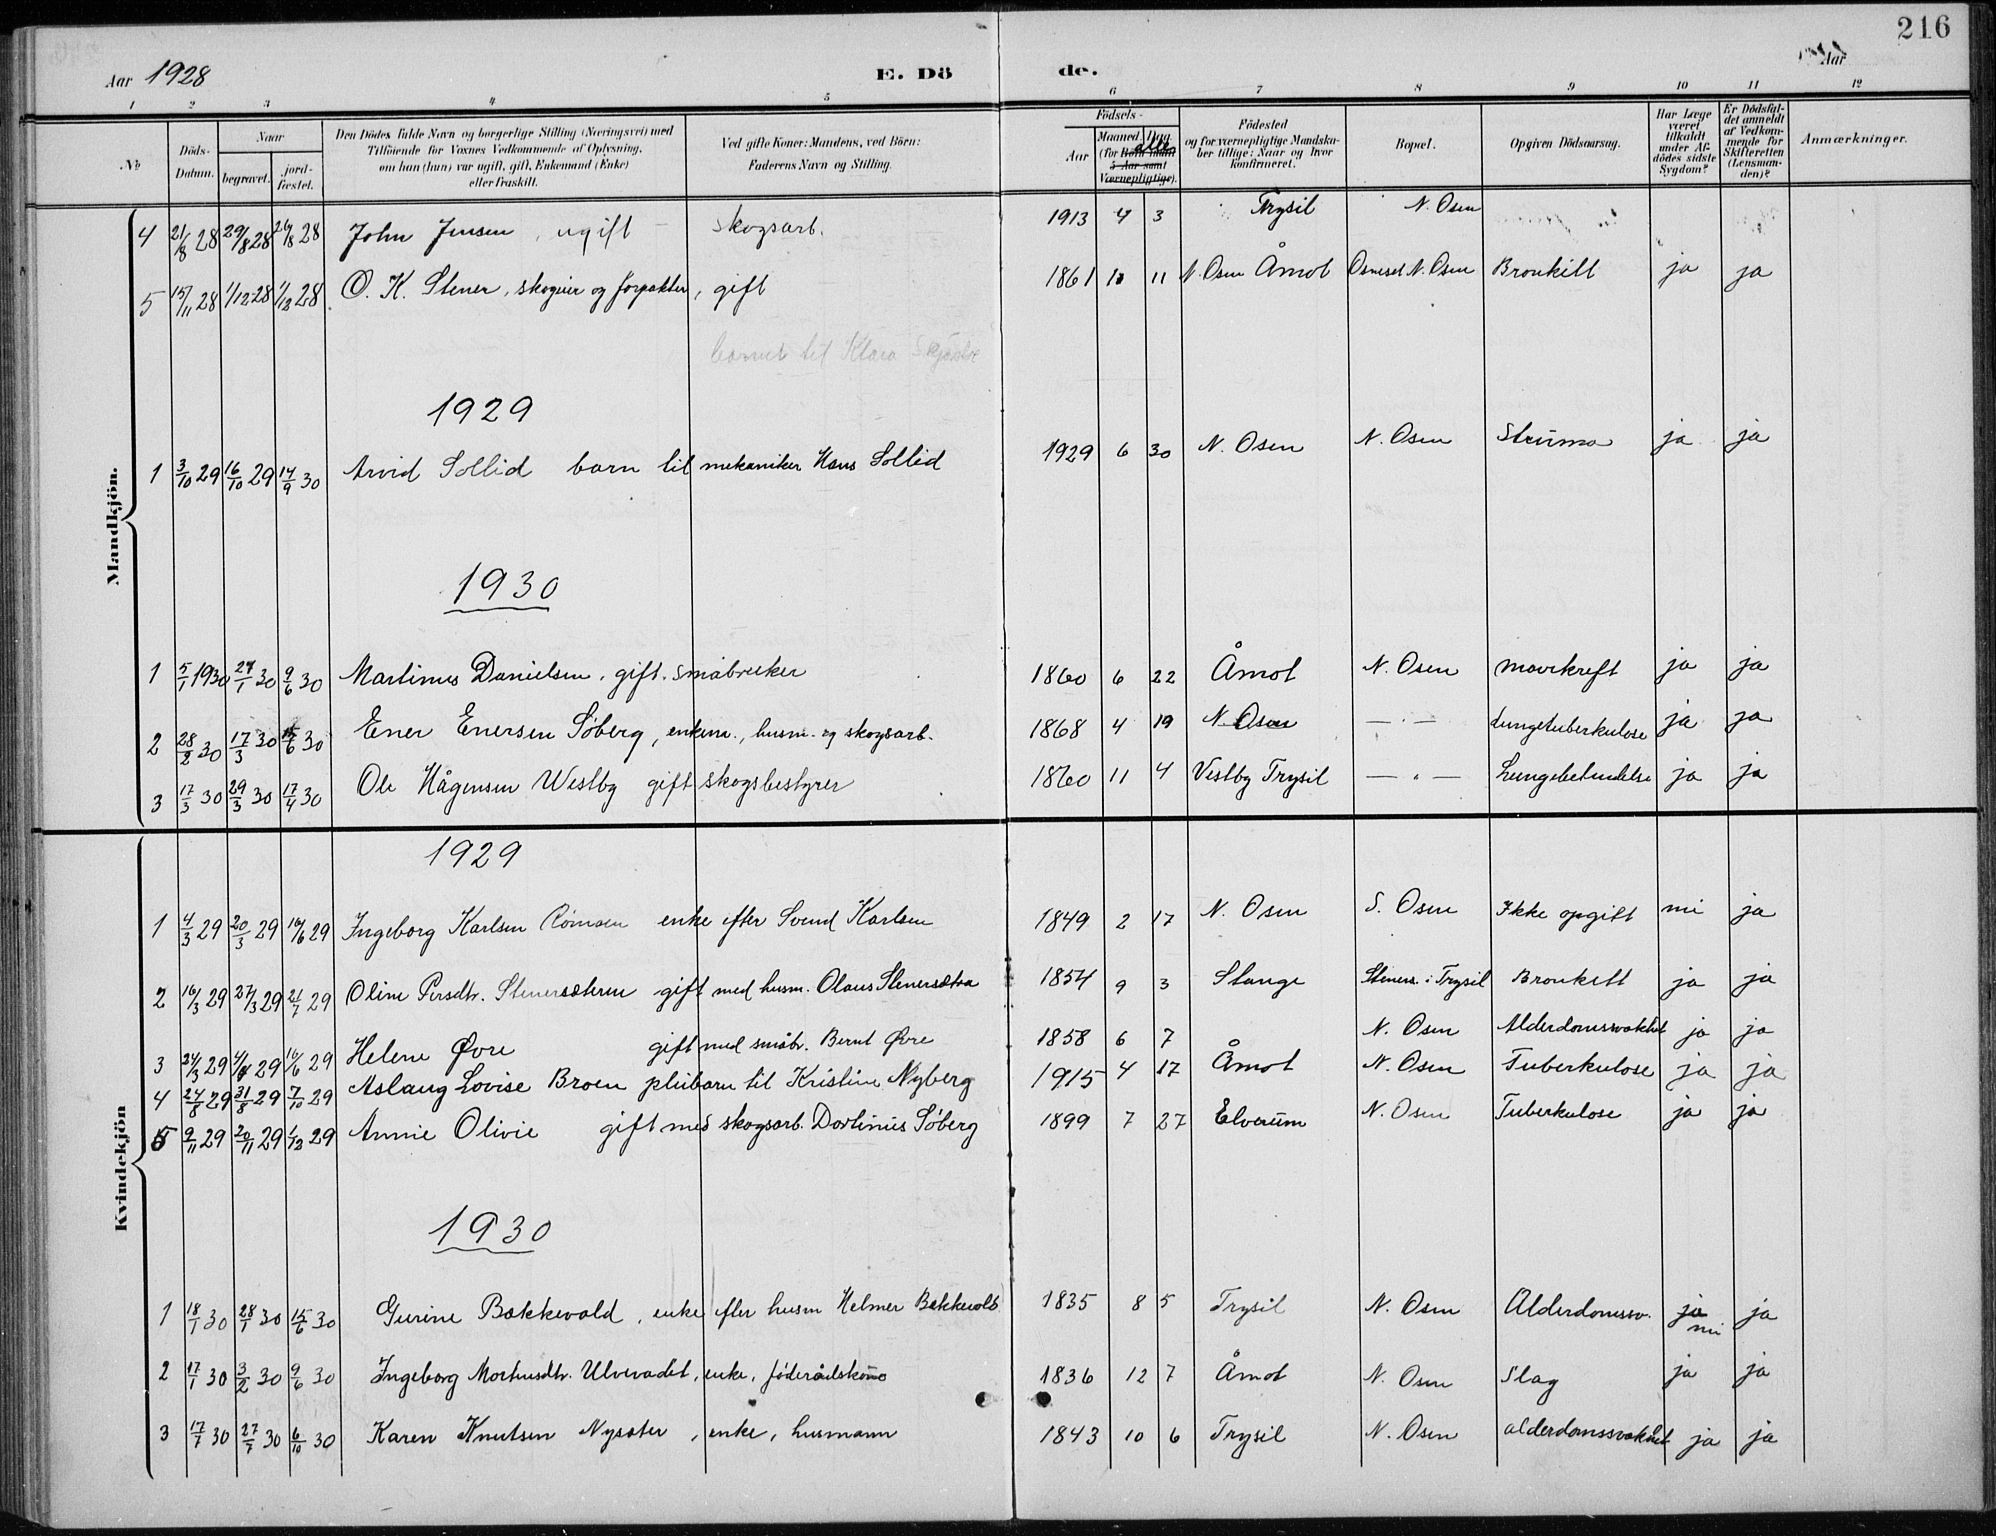 216
Aar 1928 E. Dö de. Aar
1 2 3 4 5 6 7 8 9 10 11 12
No Döds-Datum. Naar begravet. jord-fæstet. Den Dödes fulde Navn og borgerlige Stilling (Næringsvei) med Tilföiende for Voxnes Vedkommende af Oplysning, om han (hun) var ugift, gift, Enkemand (Enke) eller fraskilt. Ved gifte Koner: Mandens, ved Börn: Faderens Navn og Stilling. Födsels- Aar Maaned Dag (for alle Børn under 5 Aar samt Værnepligtige). Födested og for værnepligtige Mandskaber tillige: Naar og hvor konfirmeret. Bopæl. Opgiven Dödsaarsag. Har Læge været tilkaldt under Afdödes sidste Sygdom? Er Dödsfaldet anmeldt af Vedkommende for Skifteretten (Lensmanden)? Anmærkninger.
Mandkjön.
4 21/8 28 29/8 28 29/8 28 John Jensen, ugift skogsarb. 1913 4 3 Trysil N. Osen
5 15/11 28 1/12 28 1/12 28 O. K. Stener, skogeier og forpakter, gift 1861 11 11 N. Osen Åmot Osneset N. Osen Bronkitt ja ja
barnet til Klara
1929
1 3/10 29 16/10 29 14/9 30 Arvid Sollid barn til mekaniker Hans Sollid 1929 6 30 N. Osen N. Osen Struma ja ja
1930
1 5/1 1930 27/1 30 9/6 30 Martinus Danielsen, gift. småbruker 1860 6 22 Åmot N. Osen mavekreft ja ja
2 28/2 30 17/3 30 15/6 30 Ener Enersen Søberg, enkem., husm. og skogsarb. 1868 4 19 N. Osen — " — Lungetuberkulose ja ja
3 17/3 30 29/3 30 17/4 30 Ole Hågensen Westby gift skogsbestyrer 1860 11 4 Vestby Trysil — " — Lungebetendelse ja ja
Kvindekjön
1929
1 4/3 29 20/3 29 16/6 29 Ingeborg Karlsen Rømoen enke efter Svend Karlsen 1849 2 17 N. Osen S. Osen Ikke opgitt nei ja
2 16/3 29 27/3 29 21/7 29 Oline Persdtr. Stenersæteren gift med husm. Olaus Stenersætra 1854 9 3 Stange Steners. i Trysil Bronkitt ja ja
3 24/3 29 4/4 29 16/6 29 Helene Øvre gift med småbr. Bernt Øvre 1858 6 7 N. Osen Alderdomssvakhet ja ja
4 24/8 29 31/8 29 7/10 29 Aslaug Lovise Broen pleiebarn til Kristine Nyberg 1915 4 17 Åmot N. Osen Tuberkulose ja ja
5 9/11 29 20/11 29 1/12 29 Annie Olivie gift med skogsarb. Dortinius Søberg 1899 7 27 Elverum N. Osen Tuberkulose ja ja
1930
1 18/1 30 28/1 30 15/6 30 Gurine Bækkevold, enke efter husm Helmer Bækkevold 1835 8 5 Trysil N. Osen Alderdomssv. ja nei ja
2 17/1 30 3/2 30 9/6 30 Ingeborg Mortensdtr. Ulvevadet, enke, føderådskone 1836 12 7 Åmot N. Osen Slag ja ja
3 17/7 30 27/7 30 6/10 30 Karen Knutsen Nysæter, enke, husmann 1843 10 6 Trysil N. Osen alderdomssvakhet ja ja